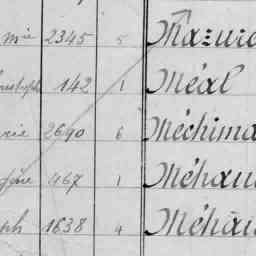 mie 2345 5 Mazurc
142 1 Méal
rie 2690 6 Méchima
gène 467 1 Méhau
ph 1638 4 Méhau